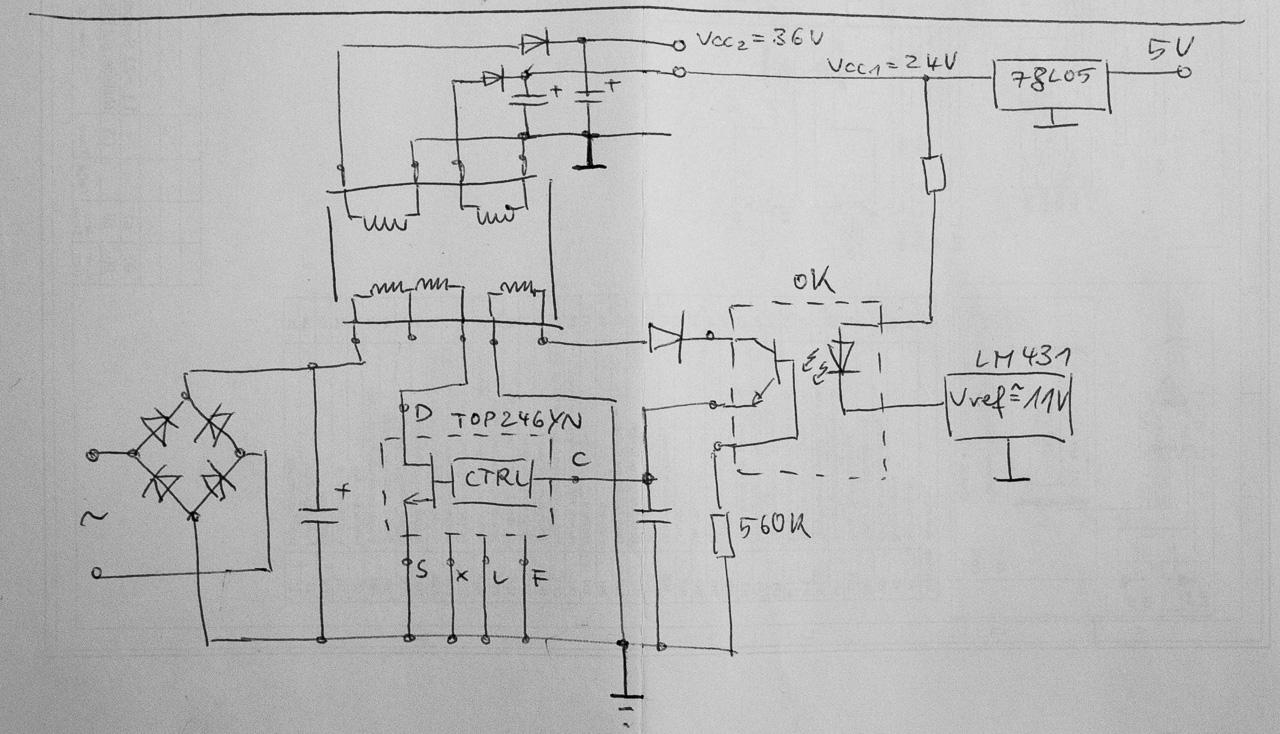 Vcc2 = 36V
Vcc1 = 24V
5V
78L05
+
+
OK
LM431
Vref ≈ 11V
D
TOP246YN
CTRL
C
+
~
560K
S
X
L
F